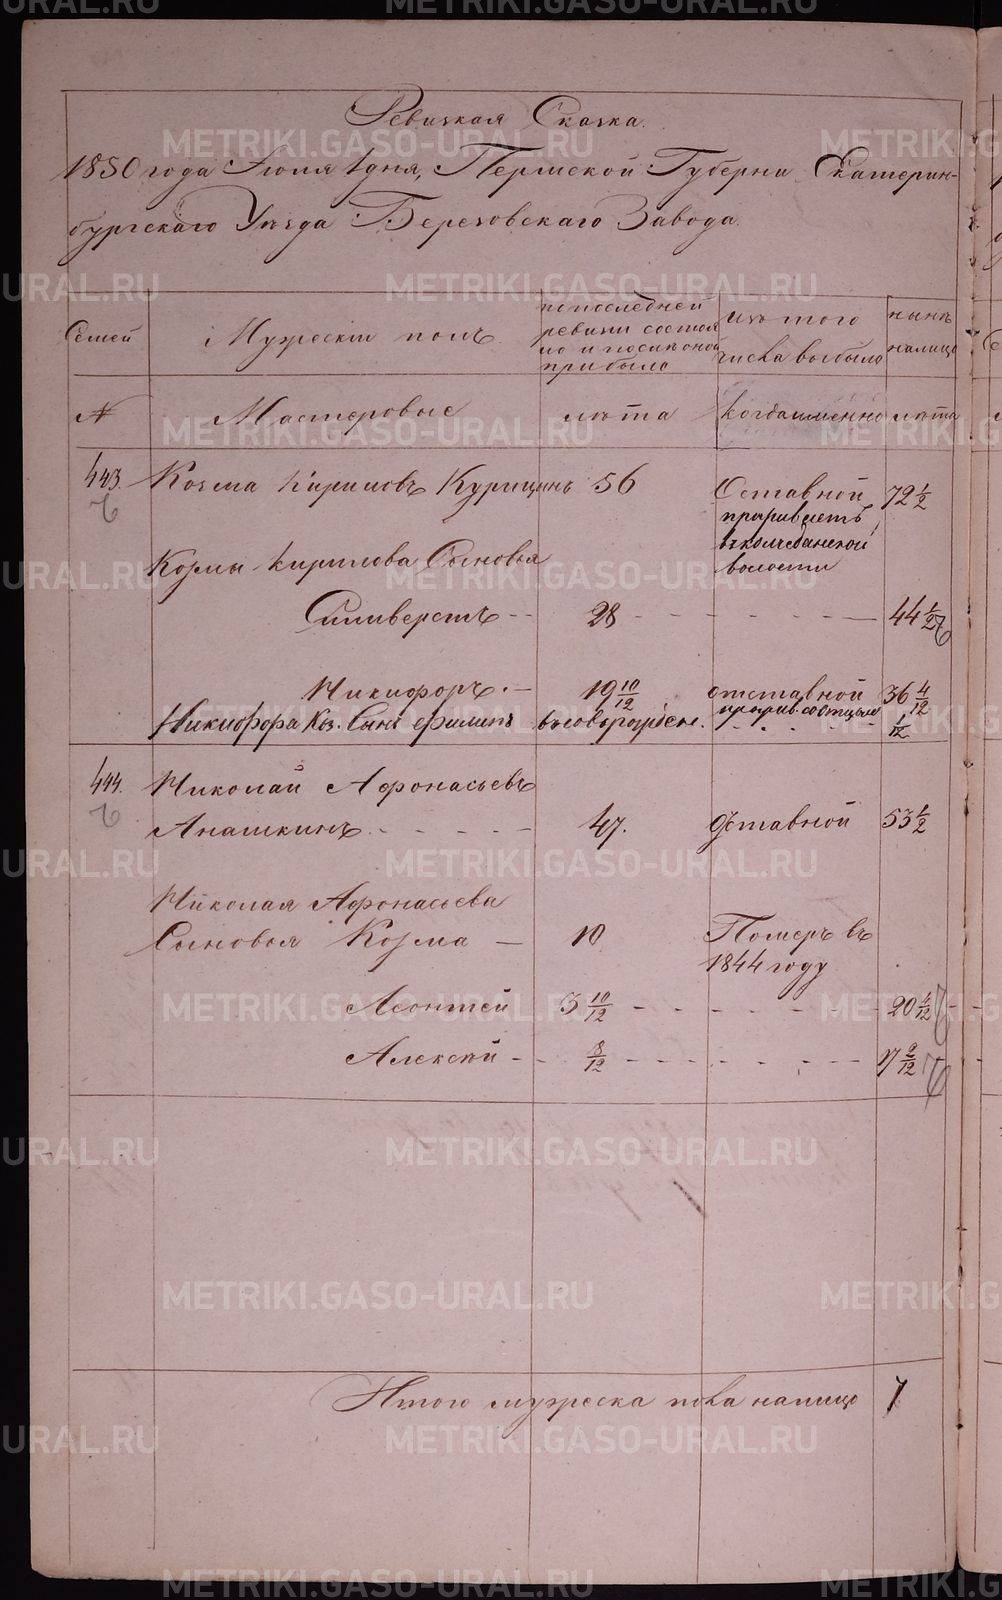 Ревизкая Сказка.
1850 года Июля 1 дня, Пермской Губерни Екатерин-
бургскаго Уезда Березовскаго Завода.
Семей
Мужескiй полъ
по последней
ревизи состоя
ло и после оной
прибыло
изъ того
числа выбыло
ныне
налицо
№
Мастеровые
лета
когда именно
лета
443.
Козма Кириловъ Курицинъ 56
Отставной
проживаетъ
в колчеданской
волости
72 1/2
Козмы Кирилова Сыновья
Силиверстъ - - 28 - - - - - 44 1/2
Никифоръ. - 19 10/12 отставной 36 4/12
Никифора Коз. Сынъ Филипъ вновьрожден. прожив. с отцемъ 1/12
444.
Николай Афонасьевъ
Анашкинъ - - - - - 47. Отставной 53 1/2
Николая Афонасьева
Сыновья Козма - 10 Померъ въ
1844 году
Леонтей 3 10/12 - - - - - 20 4/12 -
Алексей - - 8/12 - - - - - 17 2/12
Итого мужеска пола налицо 7
METRIKI.GASO-URAL.RU